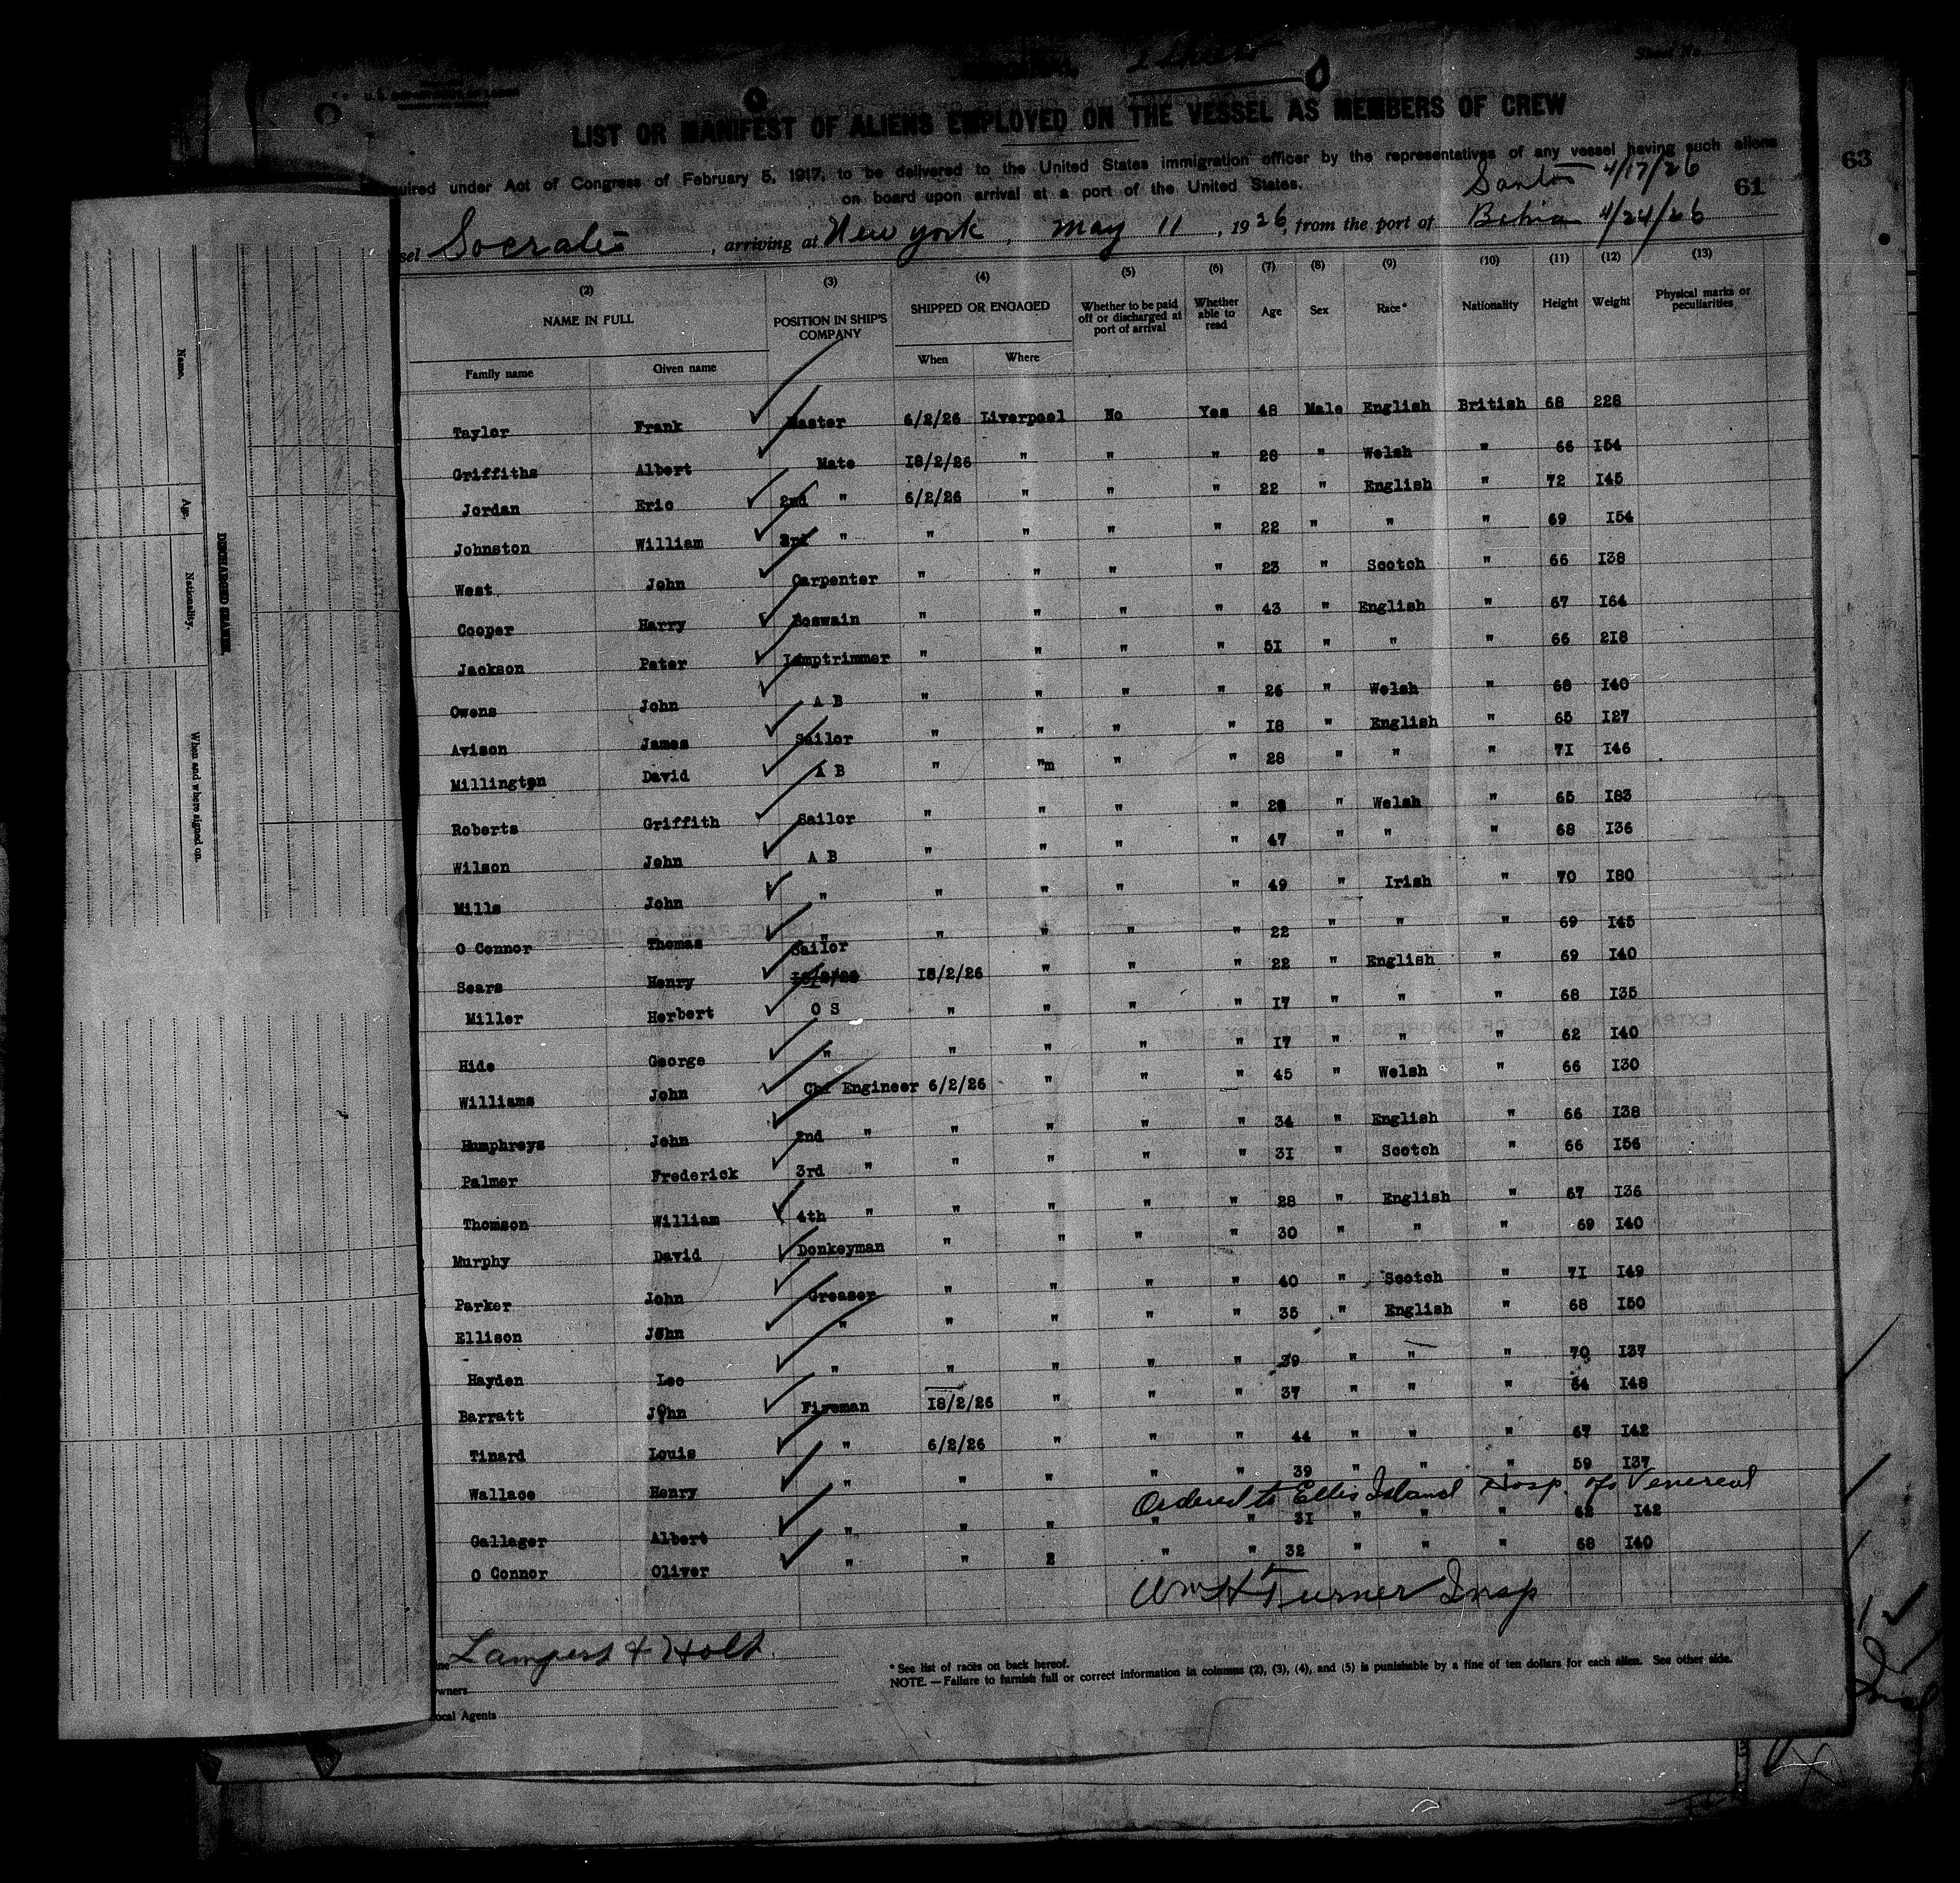 2 Sheets
Sheet No.
U. S. DEPARTMENT OF LABOR
LIST OR MANIFEST OF ALIENS EMPLOYED ON THE VESSEL AS MEMBERS OF CREW
quired under Act of Congress of February 5, 1917, to be delivered to the United States immigration officer by the representatives of any vessel having such aliens
on board upon arrival at a port of the United States.
Santos 4/17/26
61
63
sel Socrates, arriving at New york, may 11, 1926, from the port of Bahia 4/24/26
(2) (3) (4) (5) (6) (7) (8) (9) (10) (11) (12) (13)
NAME IN FULL POSITION IN SHIP'S COMPANY SHIPPED OR ENGAGED Whether to be paid off or discharged at port of arrival Whether able to read Age Sex Race* Nationality Height Weight Physical marks or peculiarities
Family name Given name When Where
Taylor Frank Master 6/2/26 Liverpool No Yes 48 Male English British 68 228
Griffiths Albert Mate 18/2/26 " " " 28 " Welsh " 66 I54
Jordan Eric 2nd " 6/2/26 " " " 22 " English " 72 I45
Johnston William 3rd " " " " " 22 " " " 69 I54
West John Carpenter " " " " 23 " Scotch " 66 I38
Cooper Harry Boswain " " " " 43 " English " 67 I64
Jackson Peter Lamptrimmer " " " " 5I " " " 66 2I8
Owens John A B " " " " 26 " Welsh " 68 I40
Avison James Sailor " " " " I8 " English " 65 I27
Millington David A B " "m " " 28 " " " 7I I46
Roberts Griffith Sailor " " " " 28 " Welsh " 65 I83
Wilson John A B " " " " 47 " " " 68 I36
Mills John " " " " " 49 " Irish " 70 I80
O Connor Thomas " " " " " 22 " " " 69 I45
Sears Henry Sailor 18/2/26 " " " 22 " English " 69 I40
Miller Herbert O S " " " " I7 " " " 68 I35
Hide George " " " " " I7 " " " 62 I40
Williams John Chf Engineer 6/2/26 " " " 45 " Welsh " 66 I30
Humphreys John 2nd " " " " " 34 " English " 66 I38
Palmer Frederick 3rd " " " " " 3I " Scotch " 66 I56
Thomson William 4th " " " " " 28 " English " 67 I36
Murphy David Donkeyman " " " " 30 " " " 69 I40
Parker John Greaser " " " " 40 " Scotch " 7I I49
Ellison John " " " " " 35 " English " 68 I50
Hayden Leo " " " " " 39 " " " 70 I37
Barratt John Fireman I8/2/26 " " " 37 " " " 64 I48
Tinard Louis " 6/2/26 " " " 44 " " " 67 I42
Wallace Henry " " " " " 39 " " " 59 I37
Ordered to Ellis Island Hosp. ofs Venereal
Gallager Albert " " " " " 3I " " " 62 I42
O Connor Oliver " " 2 " " 32 " " " 68 I40
Wm H Turner Insp
ne Lampert & Holt.
wners
ocal Agents
* See list of races on back hereof.
NOTE.—Failure to furnish full or correct information in columns (2), (3), (4), and (5) is punishable by a fine of ten dollars for each alien. See other side.
Name.
Age.
Nationality.
When and where signed on.
DISCHARGED SEAMEN.